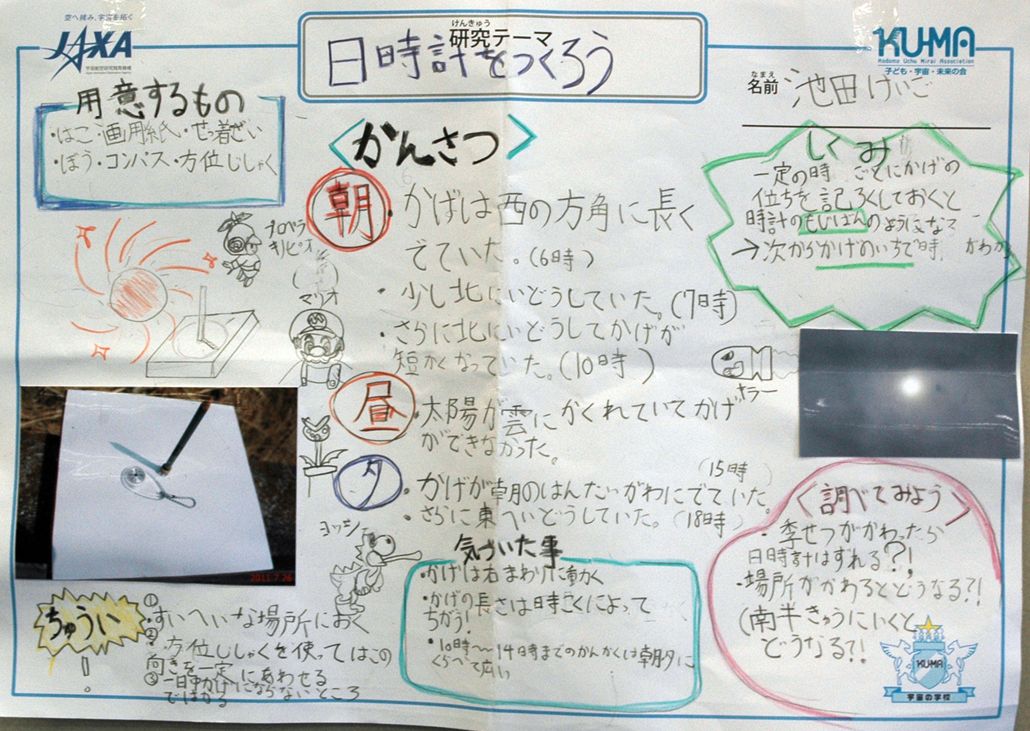 空へ挑み、宇宙を拓く
JAXA
宇宙航空研究開発機構
けんきゅう
研究テーマ
日時計をつくろう
KU-MA
Kodomo Uchu Mirai Association
子ども・宇宙・未来の会
なまえ
名前 池田けいご
用意するもの
・はこ・画用紙・せっ着ざい
・ぼう・コンパス・方位じしゃく
<かんさつ>
朝
・かげは西の方角に長く
でていた。(6時)
・少し北にいどうしていた。(7時)
・さらに北にいどうしてかげが
短かくなっていた。(10時)
昼
太陽が雲にかくれていてかげ
ができなかった。
夕
(15時)
・かげが朝のはんたいがわにでていた。
・さらに東へいどうしていた。(18時)
しくみ
一定の時 ごとにかげの
位ちを記ろくしておくと
時計のもじばんのようになる
→次からかげのいちで時 がわかる
プロペラ
キノピオ
マリオ
キラー
ヨッシー
2011.7.26
気づいた事
・かげは右まわりに動く
・かげの長さは時こくによって
ちがう!
・10時〜14時までのかんかくは朝夕に
くらべて広い
<調べてみよう>
・季せつがかわったら
日時計はずれる?!
・場所がかわるとどうなる?!
(南半きゅうにいくと
どうなる?!
ちゅうい!
①すいへいな場所におく
②方位じしゃくを使ってはこの
向きを一定にあわせる
③一日中かげにならないところ
ではかる
KU-MA
宇宙の学校